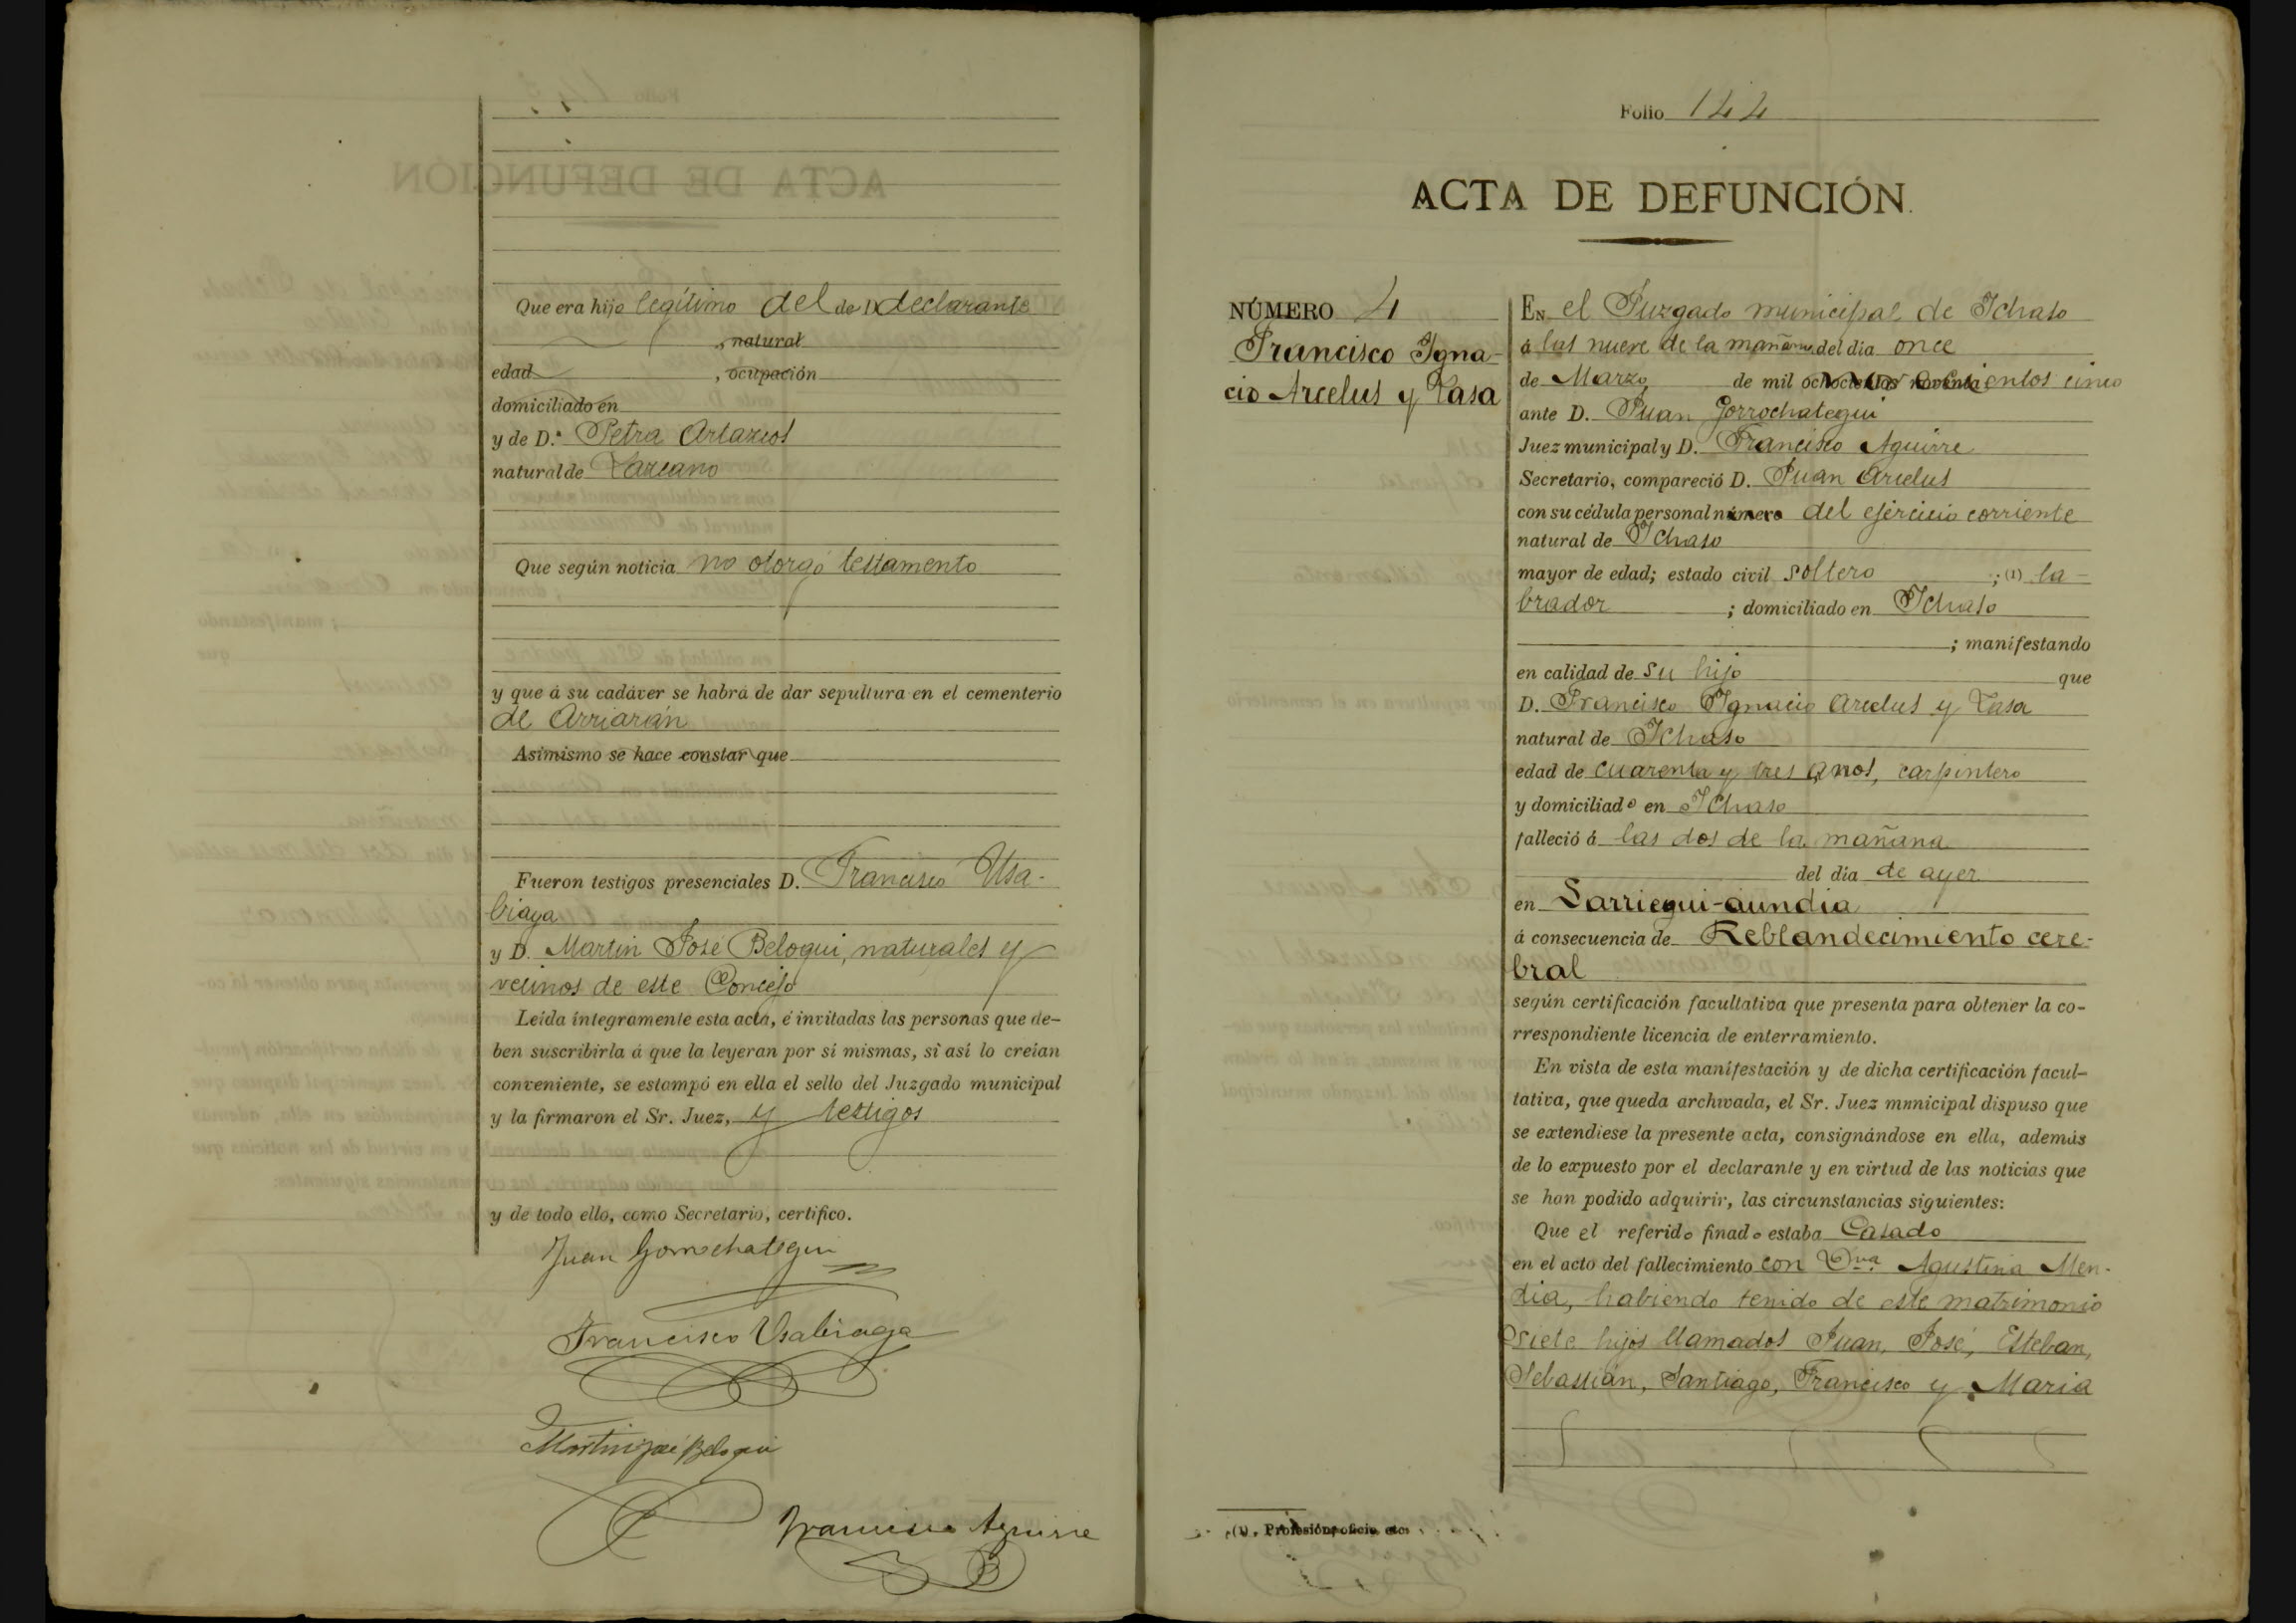 Que era hijo legítimo del de D. declarante
, natural
edad , ocupación
domiciliado en
y de D.ª Petra Artazcoz
natural de Lazcano
Que según noticia no otorgó testamento
y que á su cadáver se habrá de dar sepultura en el cementerio
de Arriarán
Asimismo se hace constar que
Fueron testigos presenciales D. Francisco Usa-
biaga
y D. Martin José Beloqui, naturales y
vecinos de este Concejo
Leída íntegramente esta acta, é invitadas las personas que de-
ben suscribirla á que la leyeran por sí mismas, si así lo creían
conveniente, se estampó en ella el sello del Juzgado municipal
y la firmaron el Sr. Juez, y testigos
y de todo ello, como Secretario, certifico.
Juan Gorrochategui
Francisco Usabiaga
Martin José Beloqui
Francisco Aguirre
Folio 144
ACTA DE DEFUNCIÓN.
NÚMERO 4
Francisco Igna-
cio Arcelus y Zasa
En el Juzgado municipal de Ichaso
á las nueve de la mañana del día once
de Marzo de mil ochocientos noventa novecientos cinco
ante D. Juan Gorrochategui
Juez municipal y D. Francisco Aguirre
Secretario, compareció D. Juan Arcelus
con su cédula personal número del ejercicio corriente
natural de Ichaso
mayor de edad; estado civil soltero ; (1) la-
brador ; domiciliado en Ichaso
; manifestando
en calidad de su hijo que
D. Francisco Ignacio Arcelus y Zasa
natural de Ichaso
edad de cuarenta y tres años, carpintero
y domiciliado en Ichaso
falleció á las dos de la mañana
del día de ayer
en Sarriegui-aundia
á consecuencia de Reblandecimiento cere-
bral
según certificación facultativa que presenta para obtener la co-
rrespondiente licencia de enterramiento.
En vista de esta manifestación y de dicha certificación facul-
tativa, que queda archivada, el Sr. Juez mnnicipal dispuso que
se extendiese la presente acta, consignándose en ella, además
de lo expuesto por el declarante y en virtud de las noticias que
se han podido adquirir, las circunstancias siguientes:
Que el referido finado estaba Casado
en el acto del fallecimiento con Dña Agustina Men-
dia, habiendo tenido de este matrimonio
siete hijos llamados Juan, José, Esteban,
Sebastián, Santiago, Francisco y Maria
(1) Profesión, oficio, etc.